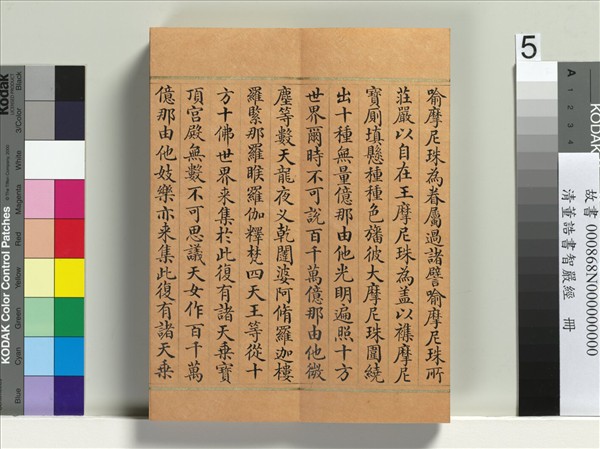 喻摩尼珠為眷屬過諸譬喻摩尼珠所
莊嚴以自在王摩尼珠為盖以襍摩尼
寶廁填懸種種色旛彼大摩尼珠圍繞
出十種無量億那由他光明遍照十方
世界爾時不可說百千萬億那由他微
塵等數天龍夜义乾闥婆阿脩羅迦樓
羅緊那羅睺羅伽釋梵四天王等從十
方十佛世界来集於此復有諸天乗寶
頂宮殿無數不可思議天女作百千萬
億那由他妓樂亦来集此復有諸天乗
5
故書 000868N000000000
清董誥書智嚴經 冊
Kodak
KODAK Color Control Patches
Blue
Cyan
Green
Yellow
Red
Magenta
White
3/Color
Black
A
1
2
3
4